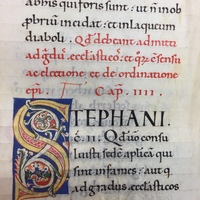 abhis qui foris sunt: ut ñ inob
ꝓbriũ incidat: et inlaqueum
diaboli. Qđ debeant admitti
adgđu ecclasticoꝝ: et q
ac electione et de ordinatione
epi. Cap. IIII.
STEPHANI.
consu
luisti sedẽ aplicã qui
sint infames: aut q
adgradus ecclasticos